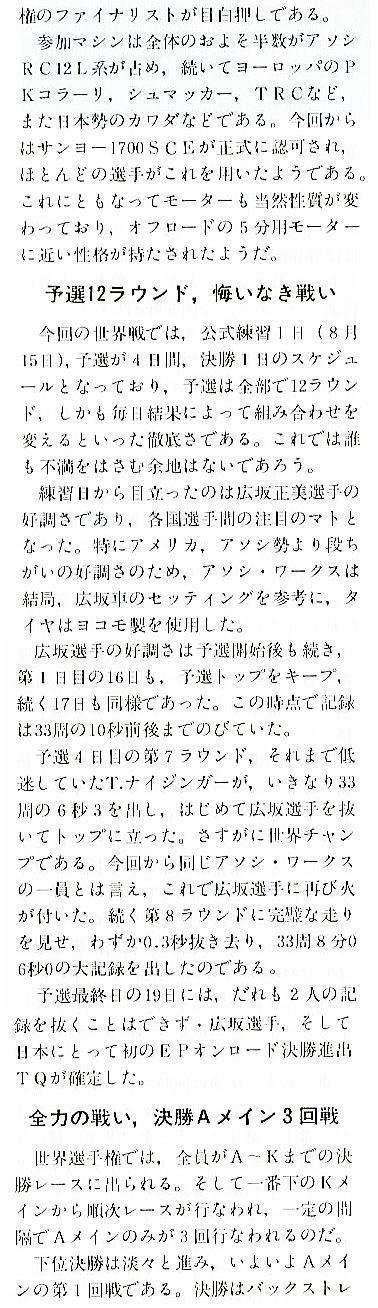 権のファイナリストが目白押しである。
参加マシンは全体のおよそ半数がアソシ
RC12L系が占め，続いてヨーロッパのP
Kコラーリ，シュマッカー，TRCなど，
また日本勢のカワダなどである。今回から
はサンヨー1700SCEが正式に認可され，
ほとんどの選手がこれを用いたようである。
これにともなってモーターも当然性質が変
わっており，オフロードの5分用モーター
に近い性格が持たされたようだ。
予選12ラウンド，悔いなき戦い
今回の世界戦では，公式練習1日（8月
15日），予選が4日間，決勝1日のスケジュ
ールとなっており，予選は全部で12ラウン
ド，しかも毎日結果によって組み合わせを
変えるといった徹底さである。これでは誰
も不満をはさむ余地はないであろう。
練習日から目立ったのは広坂正美選手の
好調さであり，各国選手間の注目のマトと
なった。特にアメリカ，アソシ勢より段ち
がいの好調さのため，アソシ・ワークスは
結局，広坂車のセッティングを参考に，タ
イヤはヨコモ製を使用した。
広坂選手の好調さは予選開始後も続き，
第1日目の16日も，予選トップをキープ，
続く17日も同様であった。この時点で記録
は33周の10秒前後までのびていた。
予選4日目の第7ラウンド，それまで低
迷していたT.ナイジンガーが，いきなり33
周の6秒3を出し，はじめて広坂選手を抜
いてトップに立った。さすがに世界チャン
プである。今回から同じアソシ・ワークス
の一員とは言え，これで広坂選手に再び火
が付いた。続く第8ラウンドに完璧な走り
を見せ，わずか0.3秒抜き去り，33周8分0
6秒0の大記録を出したのである。
予選最終日の19日には，だれも2人の記
録を抜くことはできず・広坂選手，そして
日本にとって初のEPオンロード決勝進出
TQが確定した。
全力の戦い，決勝Aメイン3回戦
世界選手権では，全員がA～Kまでの決
勝レースに出られる。そして一番下のKメ
インから順次レースが行なわれ，一定の間
隔でAメインのみが3回行なわれるのだ。
下位決勝は淡々と進み，いよいよAメイ
ンの第1回戦である。決勝はバックストレ